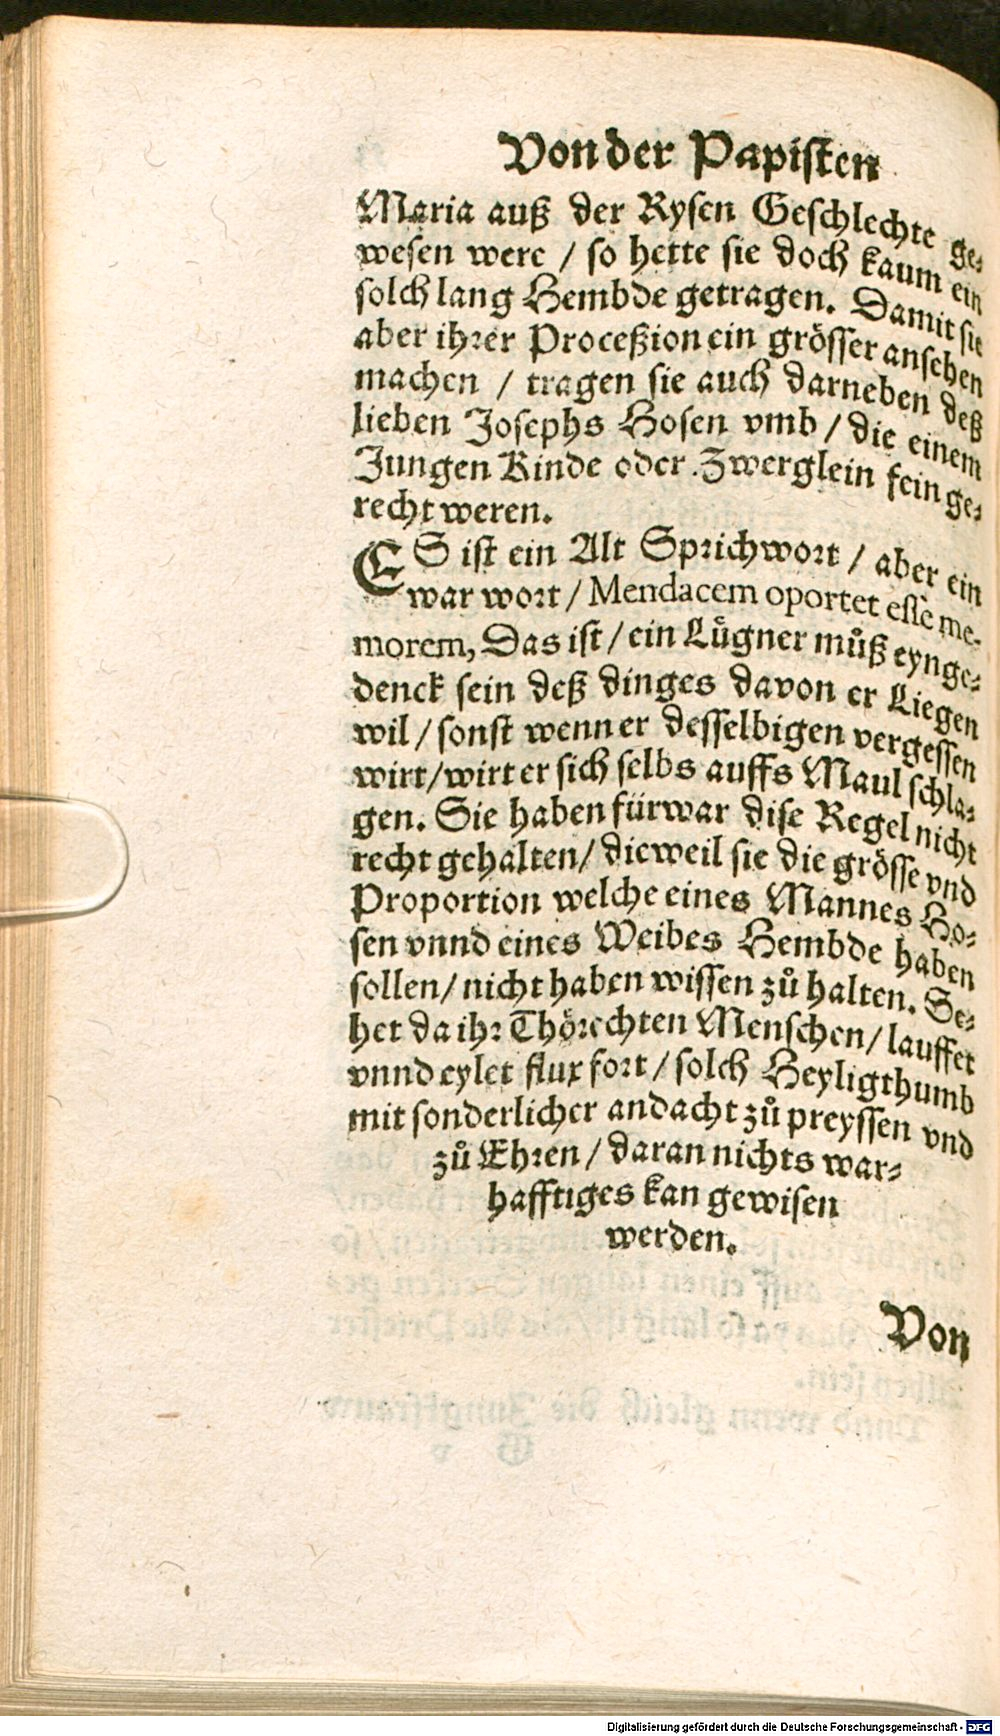 Von der Papisten
Maria auß der Rysen Geschlechte ge-
wesen were / so hette sie doch kaum ein
solch lang Hembde getragen. Damit sie
aber ihrer Proceßion ein grösser ansehen
machen / tragen sie auch darneben deß
lieben Josephs Hosen vmb / die einem
Jungen Kinde oder Zwerglein fein ge-
recht weren.
ES ist ein Alt Sprichwort / aber ein
war wort / Mendacem oportet esse me-
morem, Das ist / ein Lügner můß eynge-
denck sein deß dinges davon er Liegen
wil / sonst wenn er desselbigen vergessen
wirt / wirt er sich selbs auffs Maul schla-
gen. Sie haben fürwar dise Regel nicht
recht gehalten / dieweil sie die grösse vnd
Proportion welche eines Mannes Ho-
sen vnnd eines Weibes Hembde haben
sollen / nicht haben wissen zů halten. Se-
het da ihr Thörechten Menschen / lauffet
vnnd eylet flux fort / solch Heyligthumb
mit sonderlicher andacht zů preyssen vnd
zů Ehren / daran nichts war-
hafftiges kan gewisen
werden.
Von
Digitalisierung gefördert durch die Deutsche Forschungsgemeinschaft - DFG